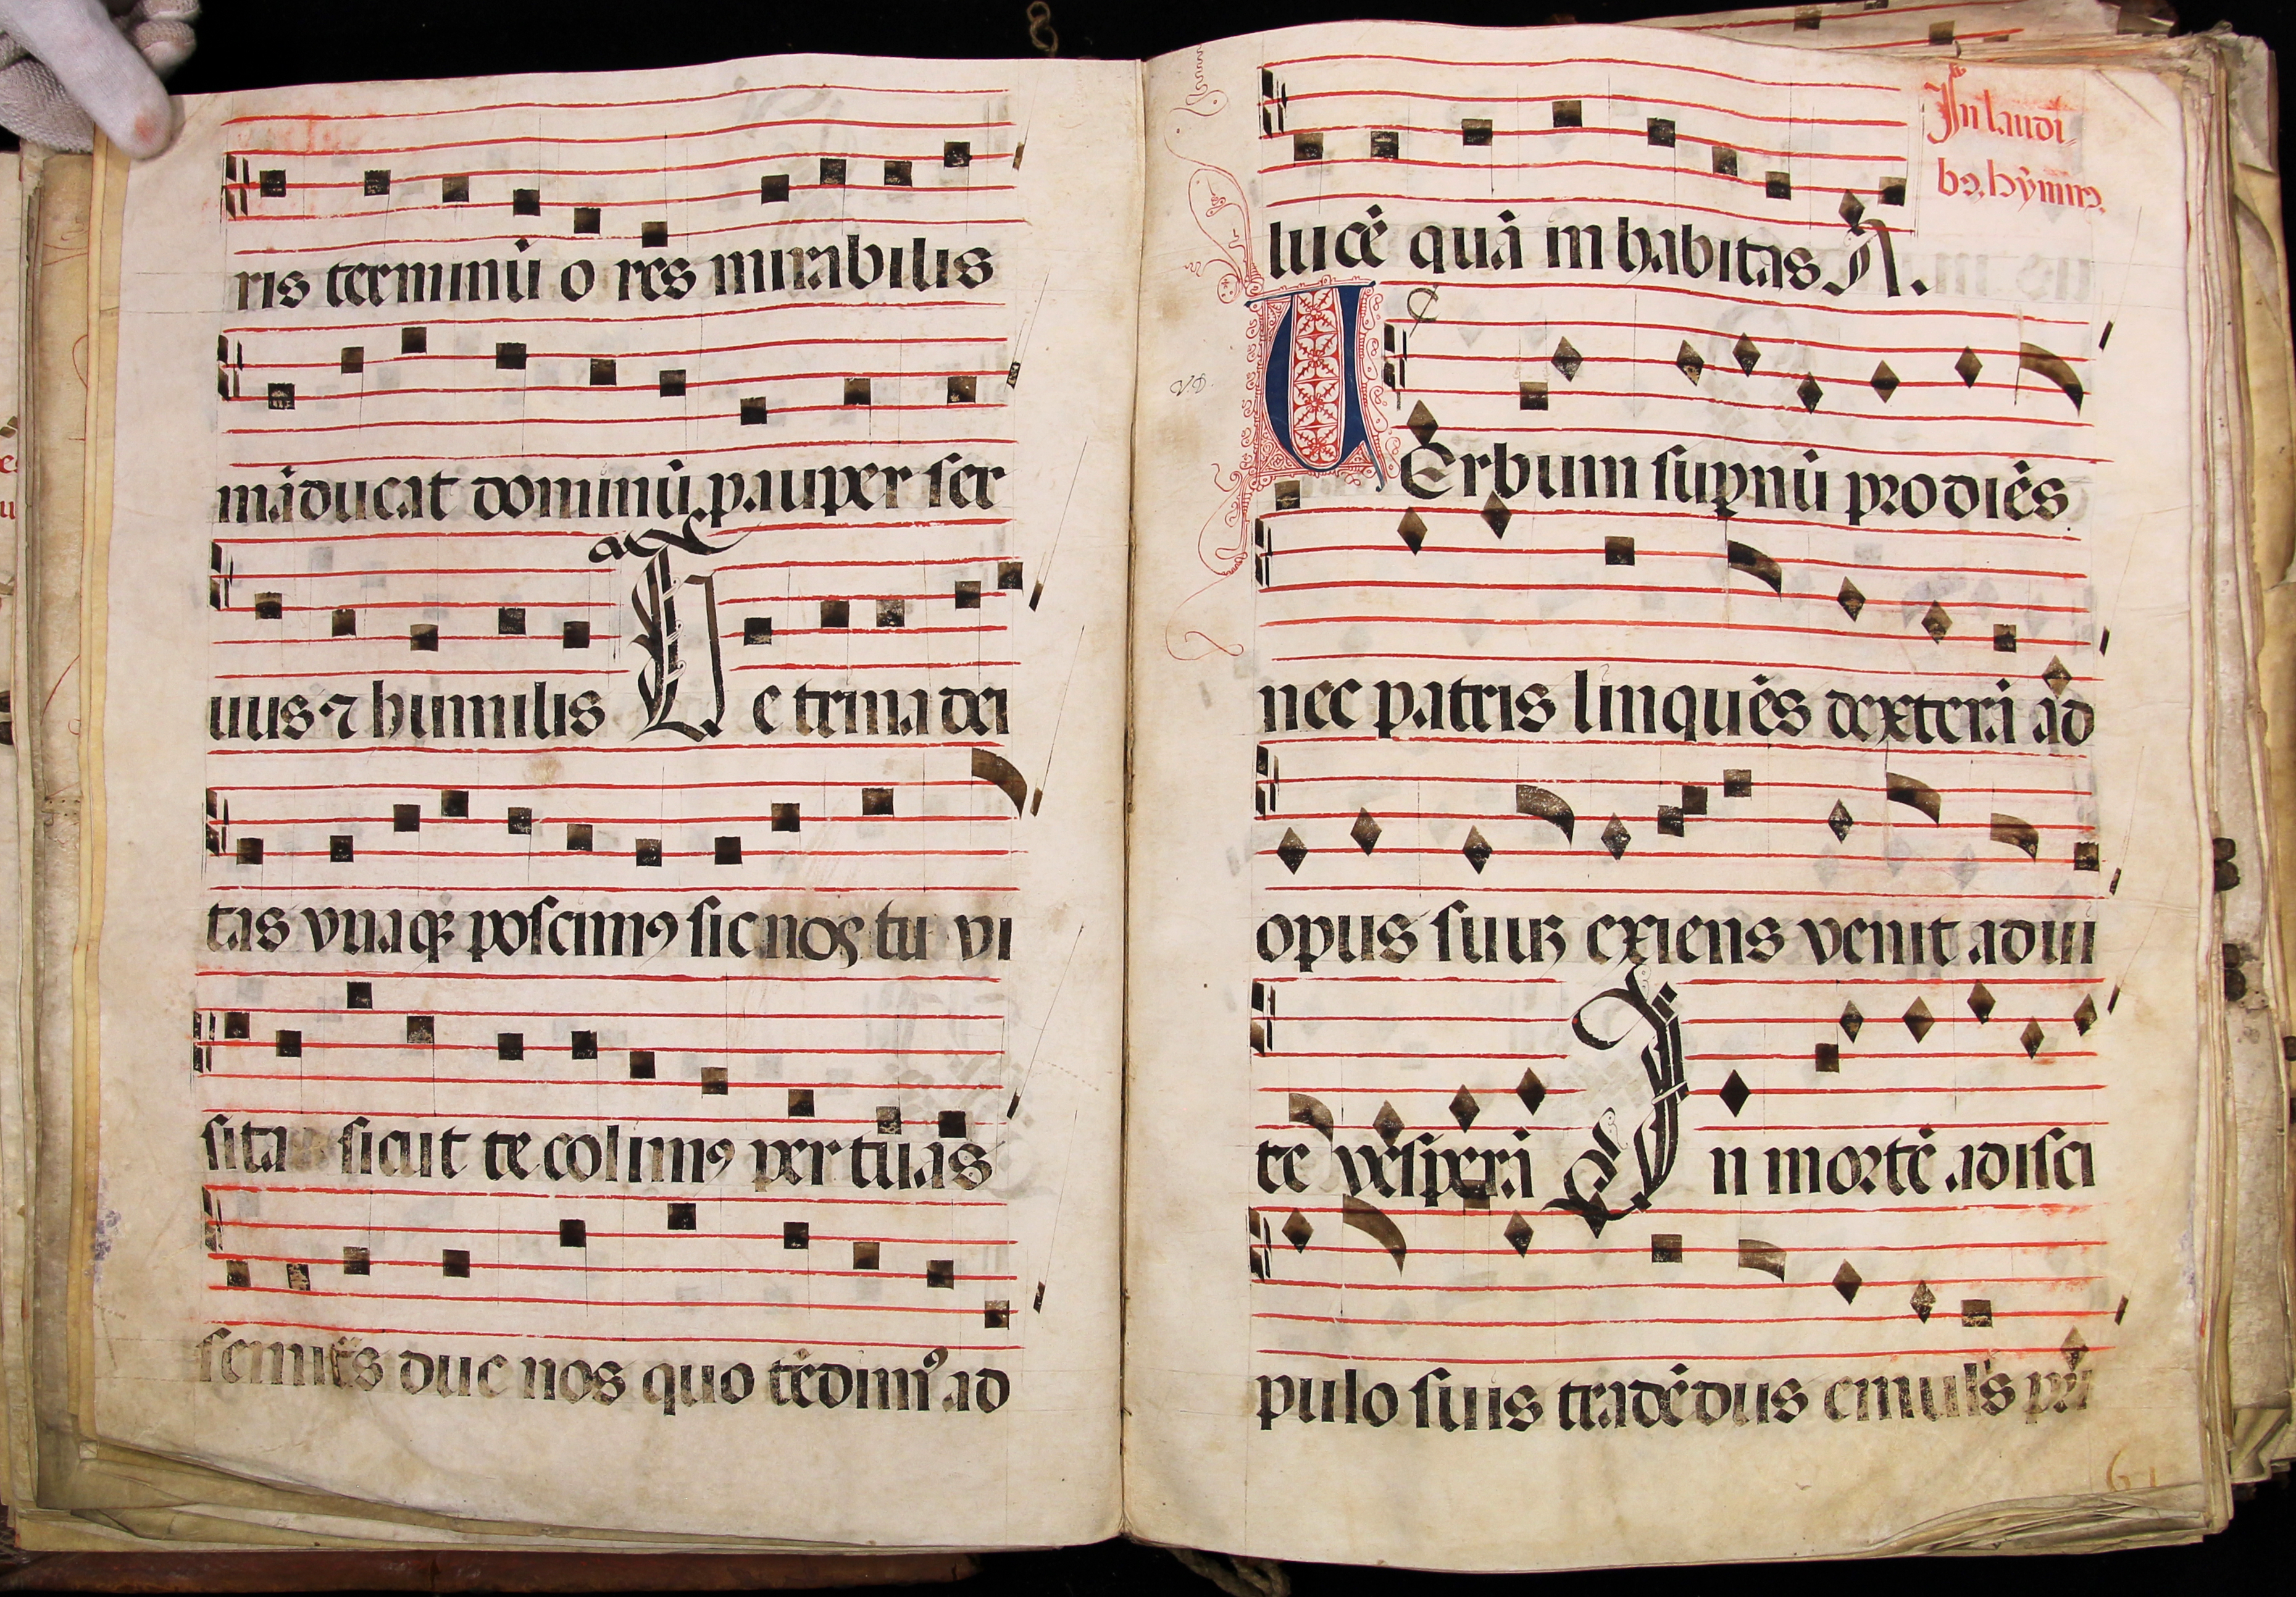 ris terminū o res mirabilis
māducat dominū pauper ser
uus ⁊ humilis Te trina dei
tas vnaqꝫ poscimꝯ sic nos tu vi
sita sicut te colimꝯ per tuas
semitās duc nos quo tēdimꝯ ad
In laudi-
bꝯ. hȳmnꝯ.
lucē quā inhabitas A.
VErbum suꝑnū prodiēs
nec patris linquēs dexterā ad
opus suuꝫ exiens venit ad ui
te vesperā In mortē a disci
pulo suis tradēdus emulis pri
61